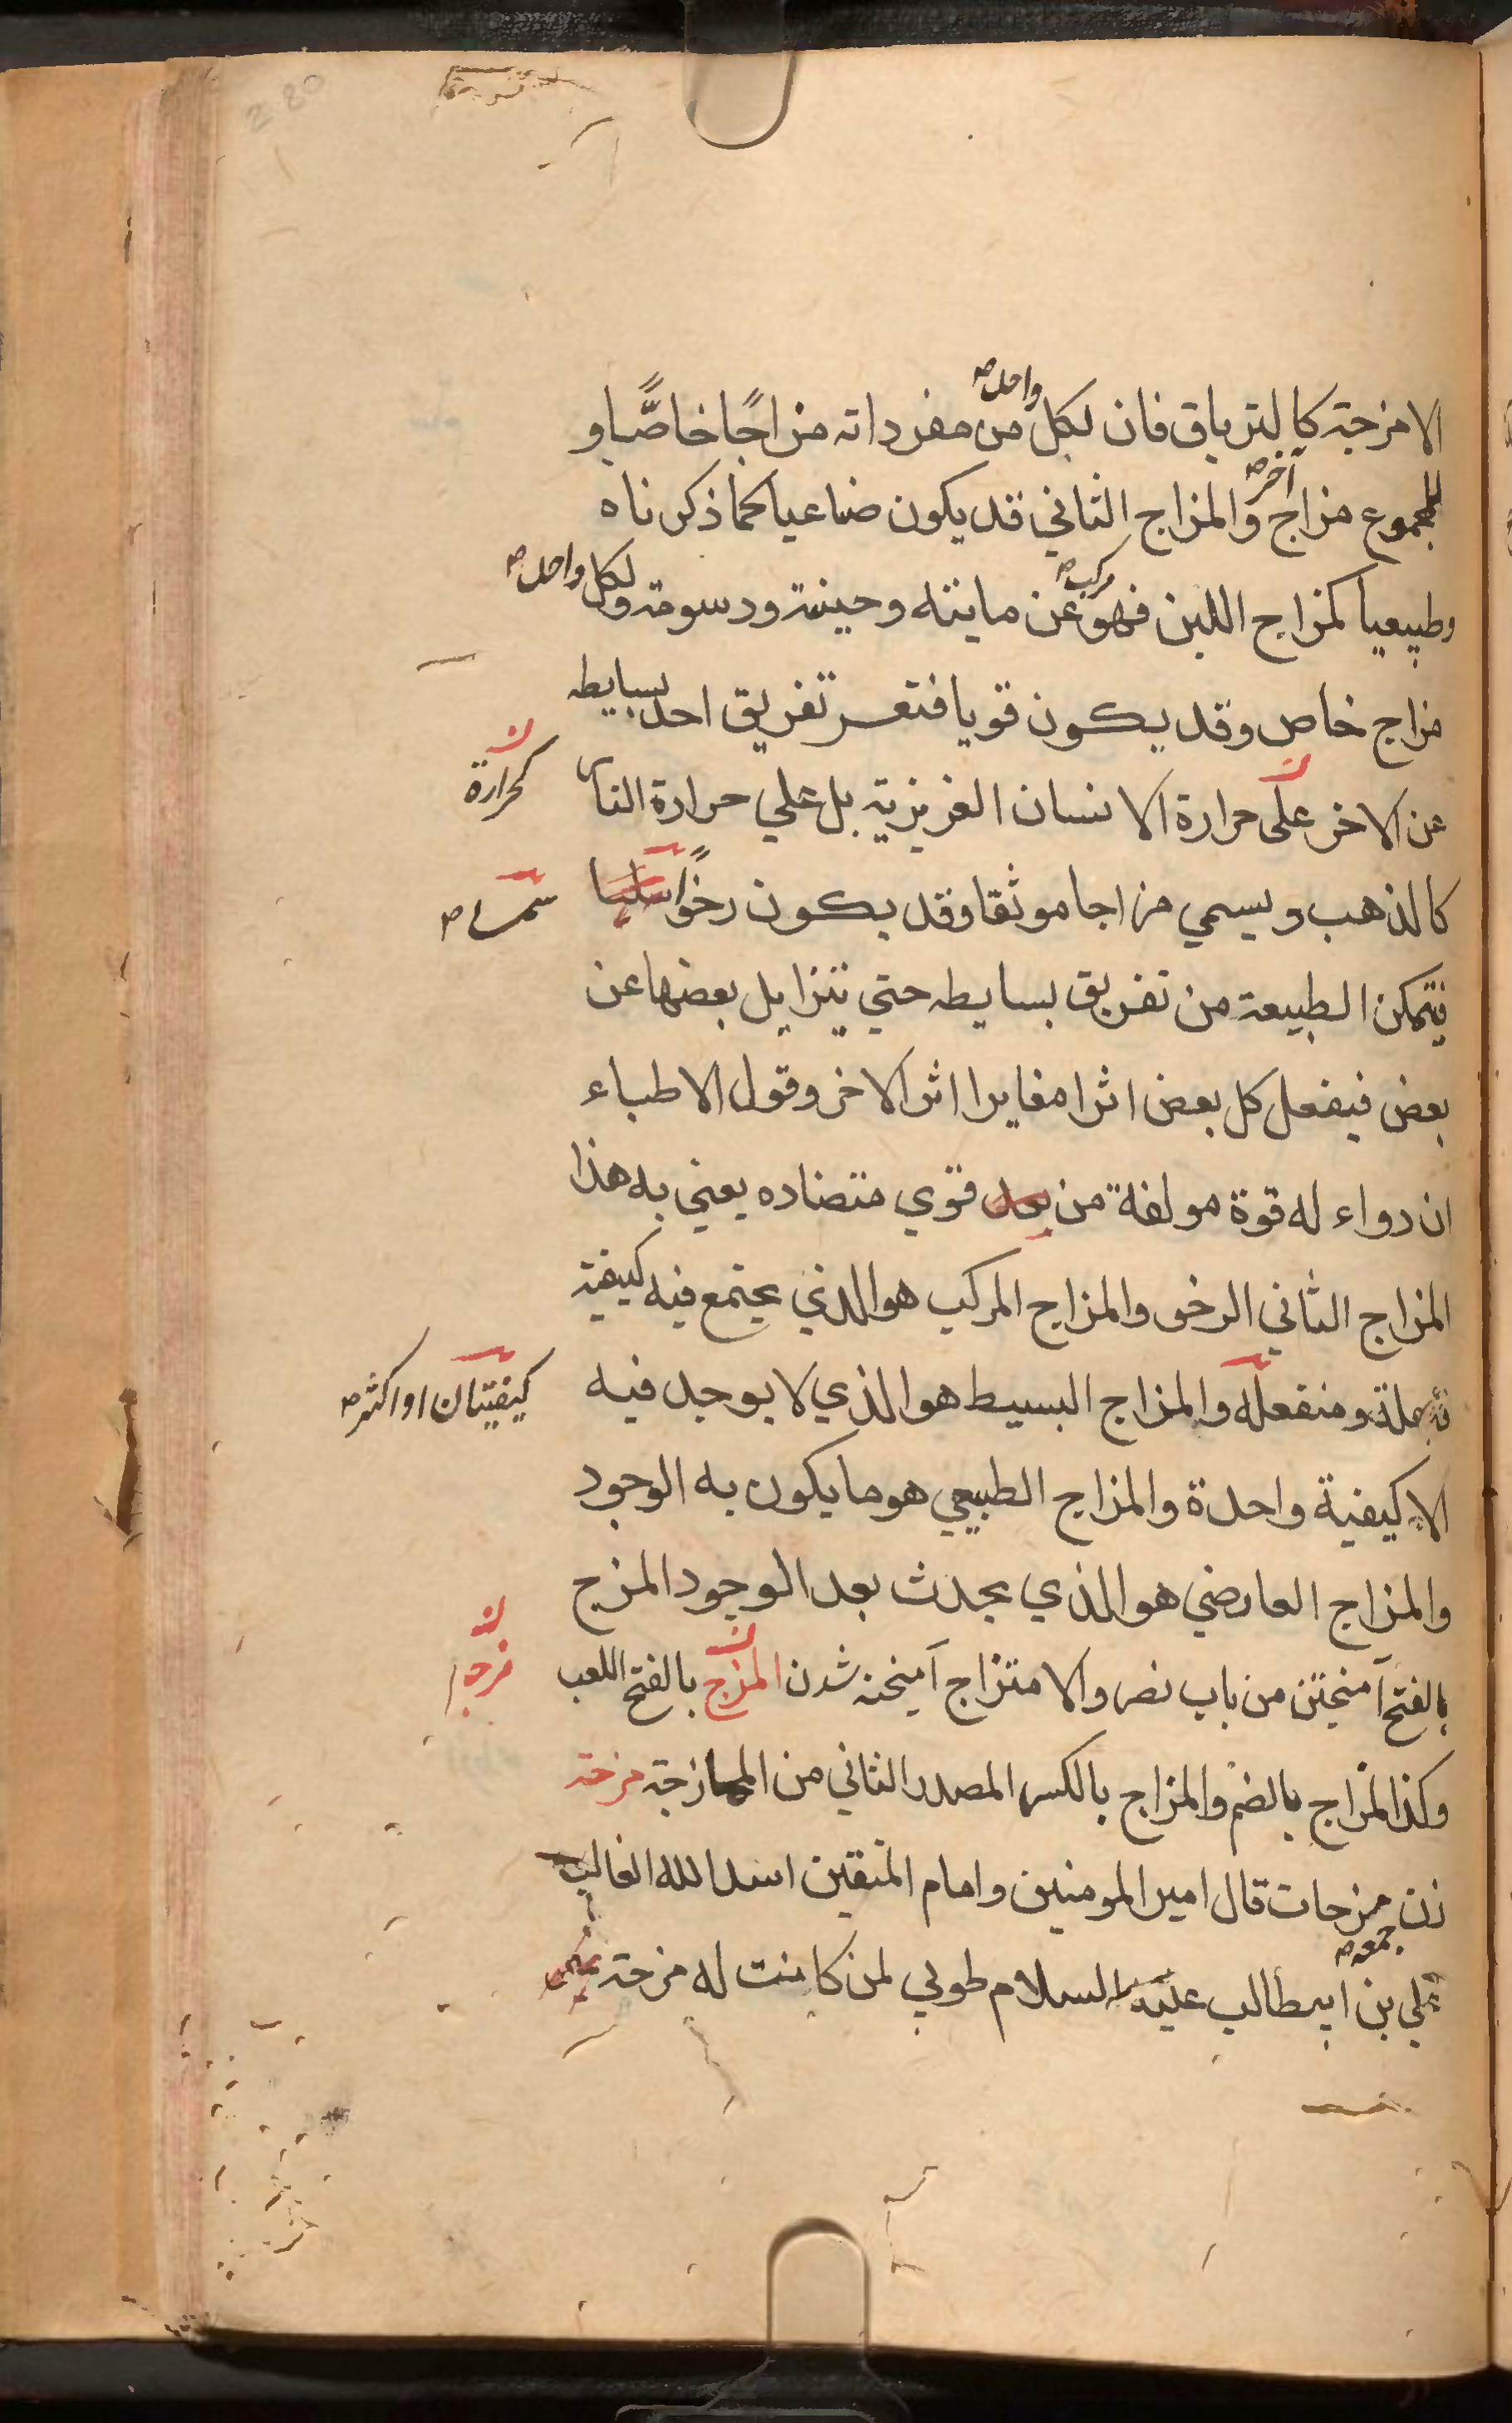 الامزجة كالترياق فان لكل واحد من مفرداته مزاجًا خاصًّا و
للمجموع مزاج آخر والمزاج الثاني قد يكون صناعيا كما ذكرناه
وطبيعيا كمزاج اللبن فهو مركب عن مايته وجبنية ودسومة ولكل واحد
مزاج خاص وقد يكون قويا فتعسر تفريق احد بسايطه
عن الاخر على حرارة الانسان الغريزية بل علي حرارة النار
كحرارة
كالذهب ويسمي مزاجا موثقا وقد يكون رخوًا سلسا
فيتمكن الطبيعة من تفريق بسايطه حتي يتزايل بعضها عن
بعض فيفعل كل بعض اثرا مغايرا اثر الاخر وقول الاطباء
ان دواء له قوة مولفة من قوي متضاده يعني به هذا
المزاج الثاني الرخو والمزاج المركب هو الذي يجتمع فيه كيفية
ومنفعله والمزاج البسيط هو الذي لا يوجد فيه
كيفيتان او اكثر
الا كيفية واحدة والمزاج الطبيعي هو ما يكون به الوجود
والمزاج العارضي هو الذي يحدث بعد الوجود المزج
بالفتح آميختن من باب نصر والامتزاج آميخته شدن المزج بالفتح اللعب
وكذا المزاج بالضم والمزاج بالكسر المصدر الثاني من الممازجة مزحة
زن مزحات قال امير المومنين وامام المتقين اسد الله الغالب
جمعه
علي بن ابيطالب عليه السلام طوبي لمن كانت له مزحة
280